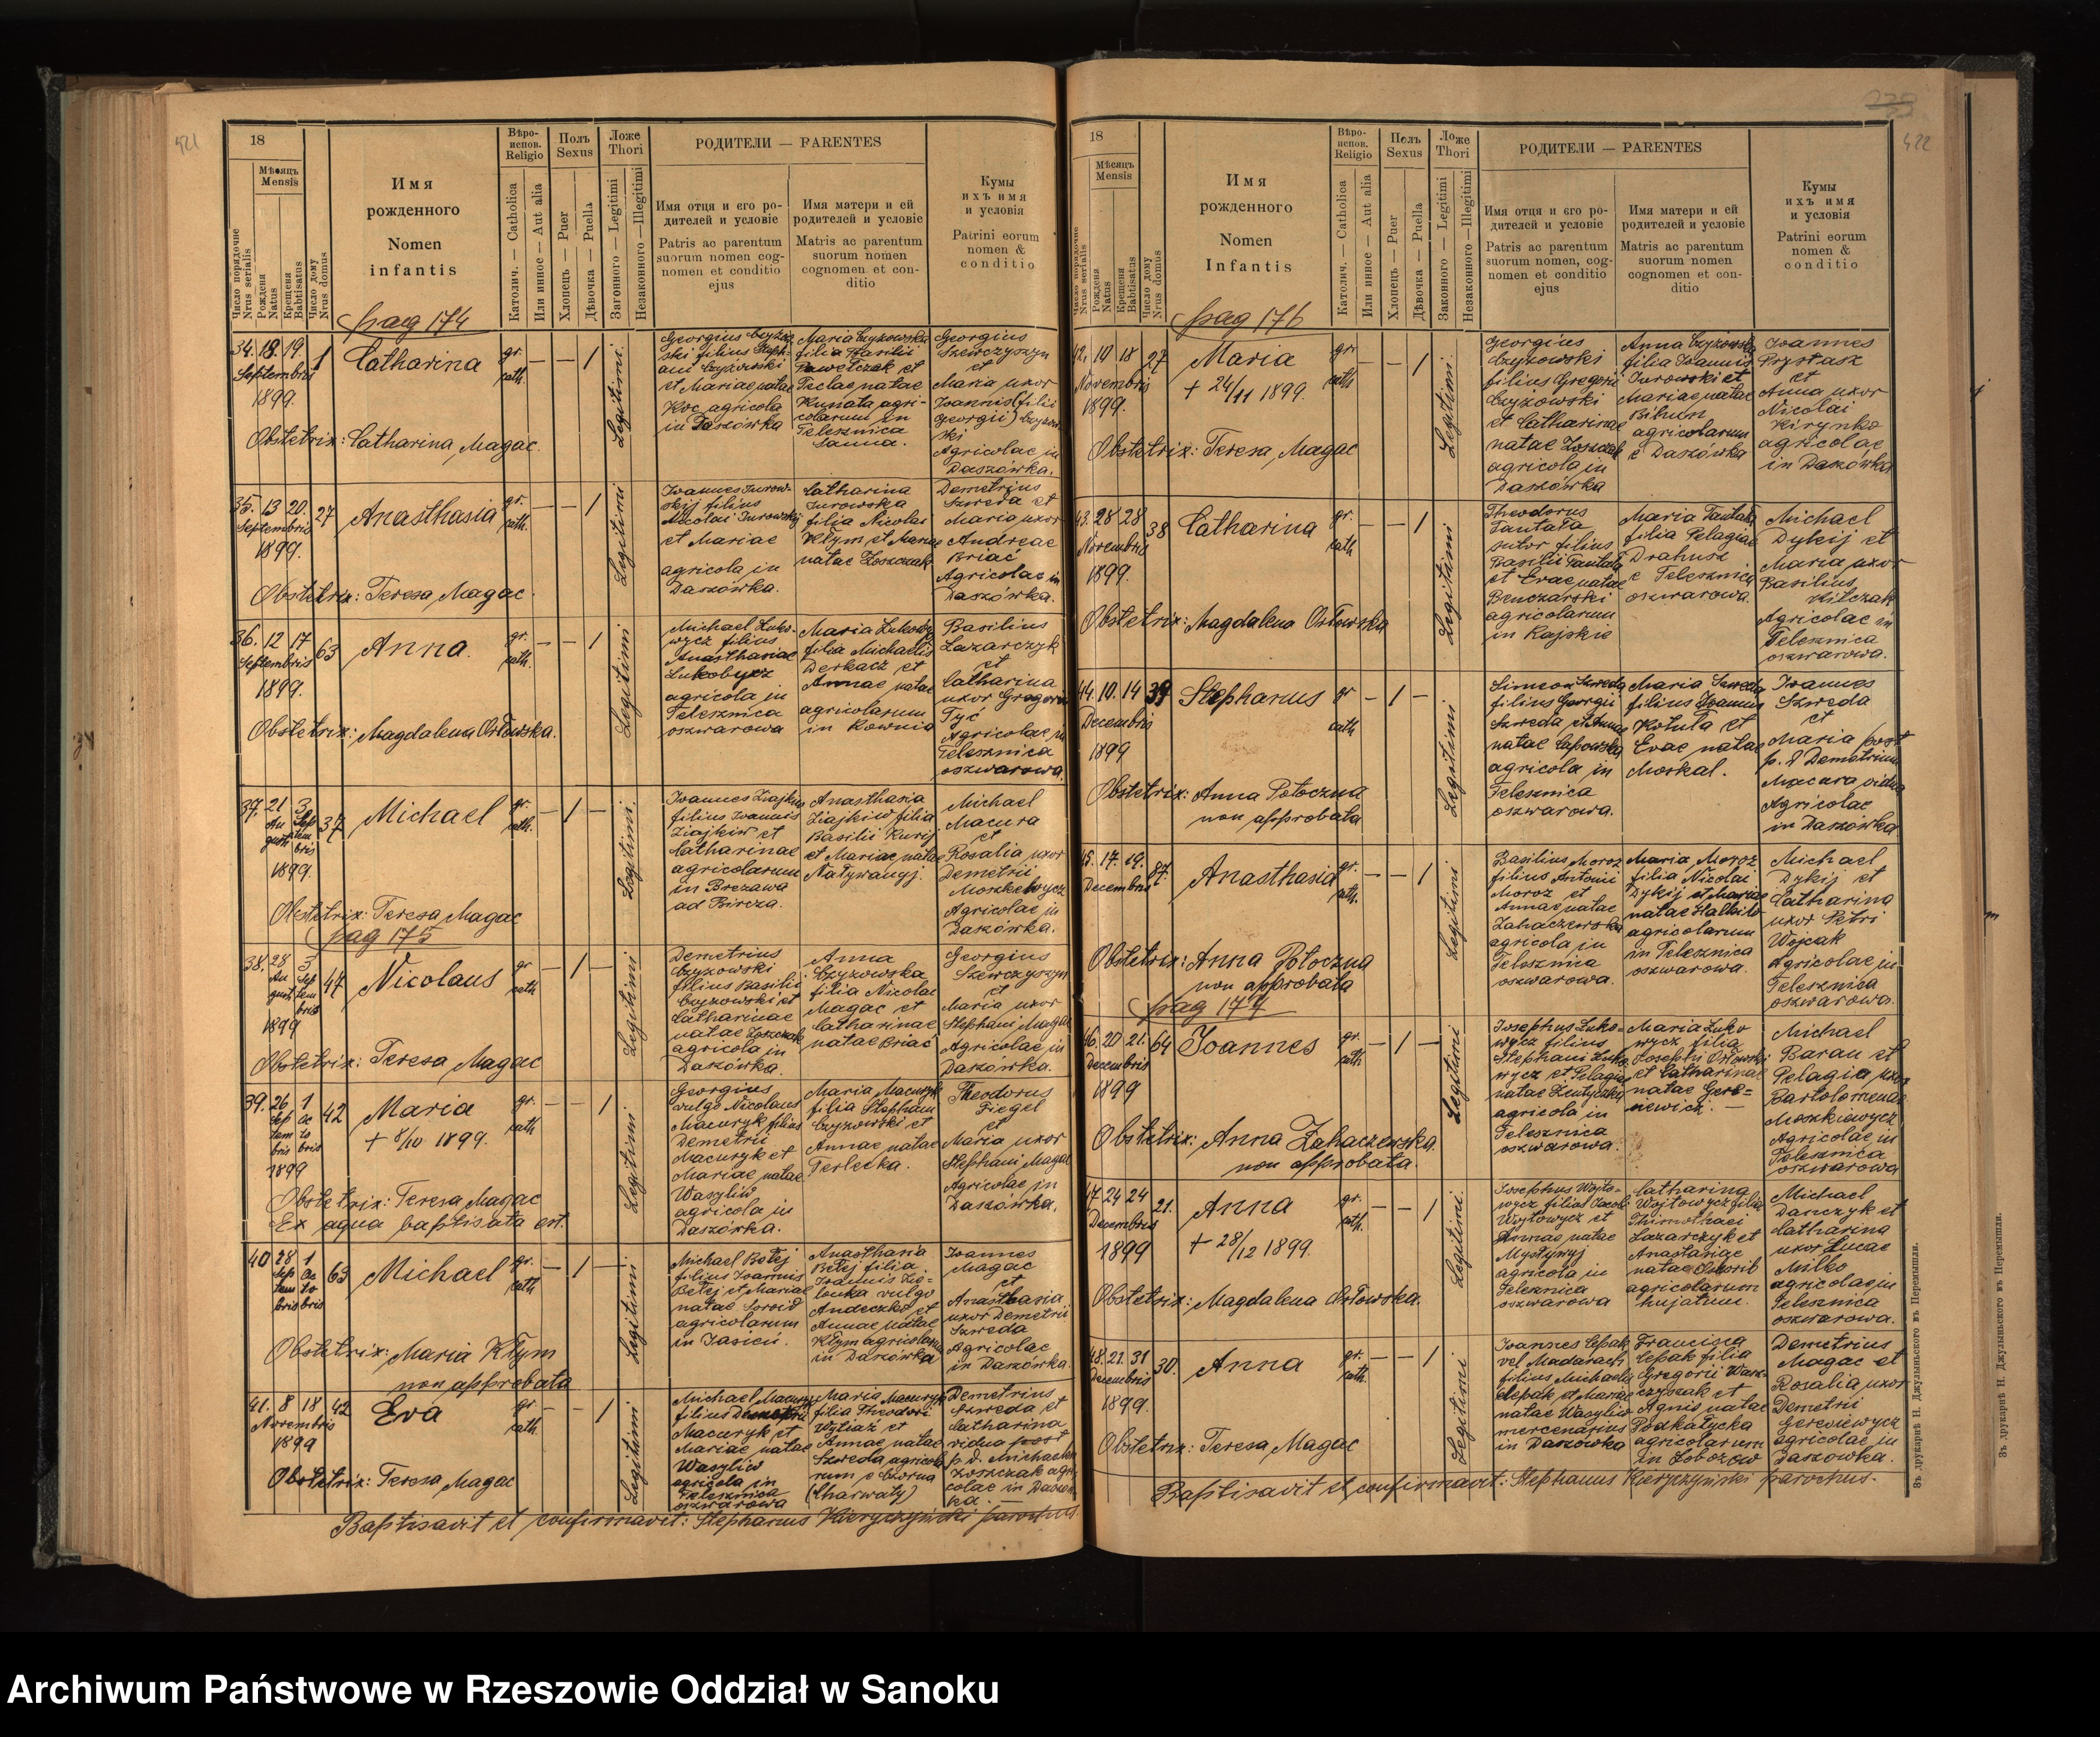 421
18
Мѣсяцъ
Mensis
Число порядочне
Nrus serialis
Рожденя
Natus
Крещеня
Babtisatus
Число дому
Nrus domus
Имя
рожденного
Nomen
infantis
Вѣро-
испов.
Religio
Католич. — Catholica
Или инное — Aut alia
Полъ
Sexus
Хлопець — Puer
Дѣвочка — Puella
Ложе
Thori
Загонного — Legitimi
Незаконного — Illegitimi
РОДИТЕЛИ — PARENTES
Имя отця и єго ро-
дителей и условіе
Patris ac parentum
suorum nomen cog-
nomen et conditio
ejus
Имя матери и ей
родителей и условіе
Matris ac parentum
suorum nomen
cognomen et con-
ditio
Кумы
ихъ имя
и условія
Patrini eorum
nomen &
conditio
pag 174
34. 18. 19. 1
Septembris
1899.
Catharina
gr. cath. — — 1
Legitimi.
Georgius Czyżow-
ski filius Steph-
ani Czyżowski
et Mariae natae
Koc agricola
in Daszówka
Maria Czyżowska
filia Basilii
Pawełczak et
Teclae natae
Kunata agri-
colarum in
Telesznica
Sanna.
Georgius
Szewczyszyn
et
Maria uxor
Ioannis (filii
Georgii) Czyżow-
ski
Agricolae in
Daszówka.
Obstetrix: Catharina Magac.
35. 13 20. 27
Septembris
1899.
Anasthasia
gr. cath. — — 1
Legitimi
Ioannes Jurow-
skij filius
Nicolai Jurowskij
et Mariae
agricola in
Daszówka.
Catharina
Jurowska
filia Nicolai
Kłym et Mariae
natae Zoszczak
Demetrius
Szweda et
Maria uxor
Andreae
Briać
Agricolae in
Daszówka.
Obstetrix: Teresa Magac.
36. 12 17 63
Septembris
1899.
Anna.
gr. cath. — — 1
Legitimi
Michael Luko-
wycz filius
Anasthasiae
Lukowycz
agricola in
Telesznica
oszwarowa
filia Michaelis
Derkacz et
Annae natae
agricolarum
in Rownia
Basilius
Lazarczyk
et
Catharina
uxor Gregorii
Tyć
Agricolae in
Telesznica
oszwarowa.
Obstetrix: Magdalena Orłowska.
37. 21 3 37
Au gusti Sep tem bris
1899.
Michael
gr. cath. — 1 —
Legitimi.
Ioannes Ziajkiw
filius Ioannis
Ziajkiw et
Catharinae
agricolarum
in Brezawa
ad Bircza.
Anasthasia
Ziajkiw filia
Basilii Kurij
et Mariae natae
Natywanyj.
Michael
Macura
et
Rosalia uxor
Demetrii
Moszkewycz
Agricolae in
Daszówka.
Obstetrix: Teresa Magac
pag 175
38. 28 3 47
Au gust. Sep tem bris
1899
Nicolaus
gr cath — 1 —
Legitimi
Demetrius
Czyżowski
filius Basilii
Czyżowski et
Catharinae
natae Zoszczak
agricola in
Daszówka.
Anna
Czyżowska
filia Nicolai
Magac et
Catharinae
natae Briać
Georgius
Szewczyszyn
et
Maria uxor
Stephani Magac
Agricolae in
Daszówka.
Obstetrix: Teresa Magac
39. 26 1 42
Sep tem bris Oc to bris
1899
Maria
+ 8/10 1899.
gr. cath — — 1
Legitimi
Georgius
vulgo Nicolaus
Macuryk filius
Demetrii
Macuryk et
Mariae natae
Wasyliw
agricola in
Daszówka.
Maria Macuryk
filia Stephani
Czyżowski et
Annae natae
Terlecka.
Theodorus
Fiegel
et
Maria uxor
Stephani Magac
Agricolae in
Daszówka.
Obstetrix: Teresa Magac
Ex aqua baptisata est.
40 28 1 63
Sep tem bris Oc to bris
Michael
gr. cath — 1 —
Legitimi
Michael Betej
filius Ioannis
Betej et Mariae
natae Soroid
agricolarum
in Jasień.
Anasthasia
Betej filia
Andeczko et
Annae natae
Kłym agricolarum
in Daszówka
Ioannes
Magac
et
Anasthasia
uxor Demetrii
Szweda
Agricolae
in Daszówka.
Obstetrix: Maria Kłym
non approbata
41. 8 18 42
Novembris
1899
Eva
gr. cath. — — 1
Legitimi
Michael Macuryk
filius Demetrii
Macuryk et
Mariae natae
Wasyliw
agricola in
Telesznica
oszwarowa
Maria Macuryk
filia Theodori
Wytiaż et
Annae natae
Szweda agricola-
rum e Czorna
(Charwaty)
Demetrius
Szweda et
Catharina
vidua post
p. d. Michaelem
Zoszczak agri-
colae in Daszów-
ka. —
Obstetrix: Teresa Magac
Baptisavit et confirmavit: Stephanus Kieryczyński parochus.
422
18
Мѣсяцъ
Mensis
Число порядочне
Nrus serialis
Рожденя
Natus
Крещеня
Babtisatus
Число дому
Nrus domus
Имя
рожденного
Nomen
Infantis
Вѣро-
испов.
Religio
Католич. — Catholica
Или инное — Aut alia
Полъ
Sexus
Хлопець — Puer
Дѣвочка — Puella
Ложе
Thori
Законного — Legitimi
Незаконного — Illegitimi
РОДИТЕЛИ — PARENTES
Имя отця и єго ро-
дителей и условіе
Patris ac parentum
suorum nomen, cog-
nomen et conditio
ejus
Имя матери и ей
родителей и условіе
Matris ac parentum
suorum nomen
cognomen et con-
ditio
Кумы
ихъ имя
и условія
Patrini eorum
nomen &
conditio
pag 176
42. 10 18 27
Novembris
1899.
Maria
+ 24/11 1899.
gr. cath — — 1
Legitimi.
Georgius
Czyżowski
filius Gregorii
Czyżowski
et Catharinae
natae Zoszczak
agricola in
Daszówka
Anna Czyżowska
filia Ioannis
Jurowski et
Mariae natae
Bihun
agricolarum
e Daszówka
Ioannes
Prystasz
et
Anna uxor
Nicolai
Kirynko
agricolae
in Daszówka
Obstetrix: Teresa Magac
43. 28 28 38
Novembris
1899.
Catharina
gr. cath — — 1
Legitimi
Theodorus
Tantała
sutor filius
Basilii Tantała
et Evae natae
Benczarski
agricolarum
in Rajskie
Maria Tantała
filia Pelagiae
Drahusz
e Telesznica
oszwarowa.
Michael
Dykij et
Maria uxor
Basilius
Kilczak
Agricolae in
Telesznica
oszwarowa.
Obstetrix: Magdalena Orłowska
44. 10. 14 39
Decembris
1899
Stephanus
gr cath — 1 —
Legitimi
Simeon Szweda
filius Georgii
Szweda et Annae
natae Capowska
agricola in
Telesznica
oszwarowa.
Maria Szweda
filius Ioannis
Kotula et
Evae natae
Moskal.
Ioannes
Szweda
et
Maria post
p. d Demetrium
Macura vidua
Agricolae
in Daszówka
Obstetrix: Anna Potoczna
non approbata
45. 17. 19. 87.
Decembris
Anasthasia
gr. cath. — — 1
Legitimi
Basilius Moroz
filius Antonii
Moroz et
Annae natae
Zahaczewska
agricola in
Telesznica
oszwarowa.
Maria Moroz
filia Nicolai
Dykij et Mariae
agricolarum
in Telesznica
oszwarowa.
Michael
Dykij et
Catharina
uxor Petri
Wojcak
Agricolae in
Telesznica
oszwarowa.
Obstetrix: Anna Potoczna
non approbata
pag 177
46. 20 21. 64
Decembris
1899
Ioannes
gr. cath — 1 —
Legitimi
Iosephus Luko-
wycz filius
Stephani Luko
wycz et Pelagiae
agricola in
Telesznica
oszwarowa.
Maria Luko
wycz filia
Josephi Orłowski
et Catharinae
natae Gere-
newicz. —
Michael
Baran et
Pelagia uxor
Bartolomeuae
Moszkiewycz
Agricolae in
Telesznica
oszwarowa
Obstetrix: Anna Zahaczewska.
non approbata.
47 24 24 21.
Decembris
1899
Anna
+ 28/12 1899.
gr. cath. — — 1
Legitimi.
Iosephus Wojto-
wycz filius Jacobi
Wojtowycz et
Annae natae
Mystywyj
agricola in
Telesznica
oszwarowa
Catharina
Wojtowycz filia
Thimothaei
Lazarczyk et
Anastasiae
agricolarum
hujatum.
Michael
Danczyk et
Catharina
uxor Lucae
Milko
agricolae in
Telesznica
oszwarowa.
Obstetrix: Magdalena Orłowska.
48. 21. 31 30.
Decembris
1899.
Anna
gr. cath. — — 1
Legitimi
Ioannes Cepak
vel Madarach
filius Michaelis
Cepak et Mariae
natae Wasyliw
mercenarius
in Daszówka
Francisca
Cepak filia
Gregorii Wasz-
czyszak et
Agnis natae
Podkałycka
agricolarum
in Zoborow
Demetrius
Magac et
Rosalia uxor
Demetrii
Gerewiewycz
agricolae in
Daszówka.
Obstetrix: Teresa Magac
Baptisavit et confirmavit: Stephanus Kieryczyński parochus.
Зъ друкарнѣ Н. Джулыньского въ Перемышли.
Зъ друкарнѣ Н. Джулыньского въ Перемышли.
Archiwum Państwowe w Rzeszowie Oddział w Sanoku